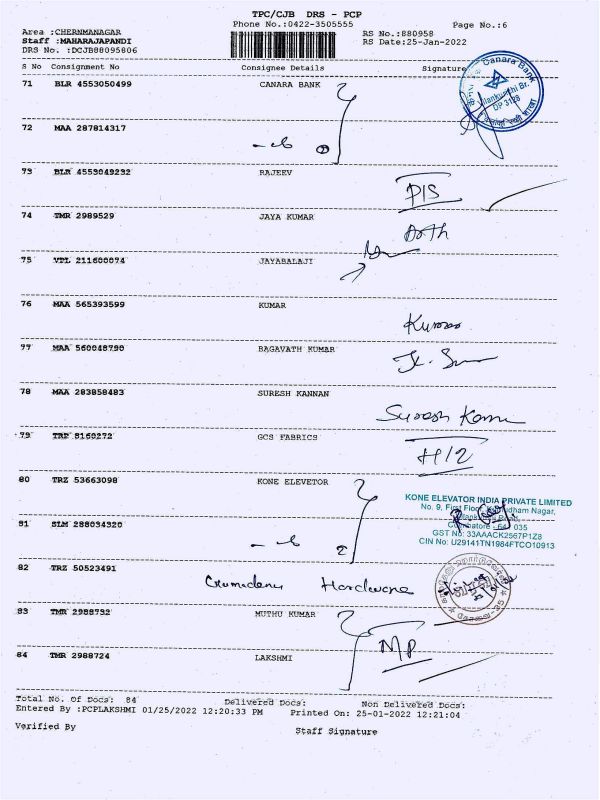 TPC/CJB DRS - PCP
Phone No.:0422-3505555
Page No.:6
Area :CHERNMANAGAR
Staff :MAHARAJAPANDI
DRS No. :DCJB88095806
RS No.:880958
RS Date:25-Jan-2022
S No Consignment No Consignee Details Signature
71 BLR 4553050499 CANARA BANK
Canara Bank
DP 3128
72 MAA 287814317
73 BLR 4553049232 RAJEEV
74 TMR 2989529 JAYA KUMAR
75 VTL 211600074 JAYABALAJI
76 MAA 565393599 KUMAR
77 MAA 560048790 BAGAVATH KUMAR
78 MAA 283858483 SURESH KANNAN
Suresh Kannan
79 TRP 8169272 GCS FABRICS
H12
80 TRZ 53663098 KONE ELEVETOR
KONE ELEVATOR INDIA PRIVATE LIMITED
No. 9, First Floor, Nagar,
Road,
Coimbatore 035
GST No: 33AAACK2567P1Z8
CIN No: U29141TN1984FTCO10913
81 SLM 288034320
82 TRZ 50523491 Hardware
83 TMR 2988732 MUTHU KUMAR
MP
84 TMR 2988724 LAKSHMI
Total No. Of Docs: 84 Delivered Docs: Non Delivered Docs:
Entered By :PCPLAKSHMI 01/25/2022 12:20:33 PM Printed On: 25-01-2022 12:21:04
Verified By Staff Signature